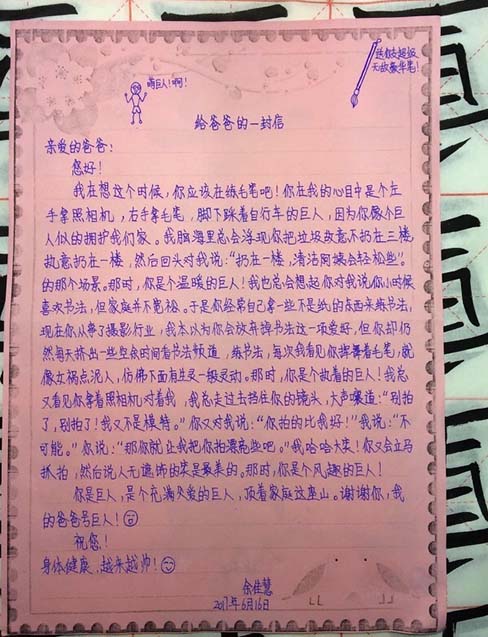 嗨巨人!啊!
送你支超级
无敌豪华笔!
给爸爸的一封信
亲爱的爸爸:
您好!
我在想这个时候,你应该在练毛笔吧!你在我的心目中是个左
手拿照相机,右手拿毛笔,脚下踩着自行车的巨人,因为你像个巨
人似的拥护我们家。我脑海里总会浮现你把垃圾故意不扔在三楼,
执意扔在一楼,然后回头对我说:“扔在一楼,清洁阿姨会轻松些”。
的那个场景。那时,你是个温暖的巨人!我也总会想起你对我说你小时候
喜欢书法,但家庭并不宽裕。于是你经常自己拿一些不是纸的东西来练书法,
现在你从事了摄影行业,我本以为你会放弃掉书法这一项爱好,但你却仍
然每天挤出一些空余时间看书法频道,练书法,每次我看见你挥舞着毛笔,就
像女祸点泥人,仿佛下面有生灵一般灵动。那时,你是个执着的巨人!我总
又看见你拿着照相机对着我,我总走过去捂住你的镜头,大声嚷道:“别拍
了,别拍了!我又不是模特。”你又对我说:“你拍的比我好!”我说:“不
可能。”你说:“那你就让我把你拍漂亮些吧。”我哈哈大笑!你又会立马
抓拍,然后说人无遮饰的笑是最美的。那时,你是个风趣的巨人!
你是巨人,是个充满父爱的巨人,顶着家庭这座山。谢谢你,我
的爸爸号巨人!
祝您!
身体健康,越来越帅!
余佳慧
2017年6月16日